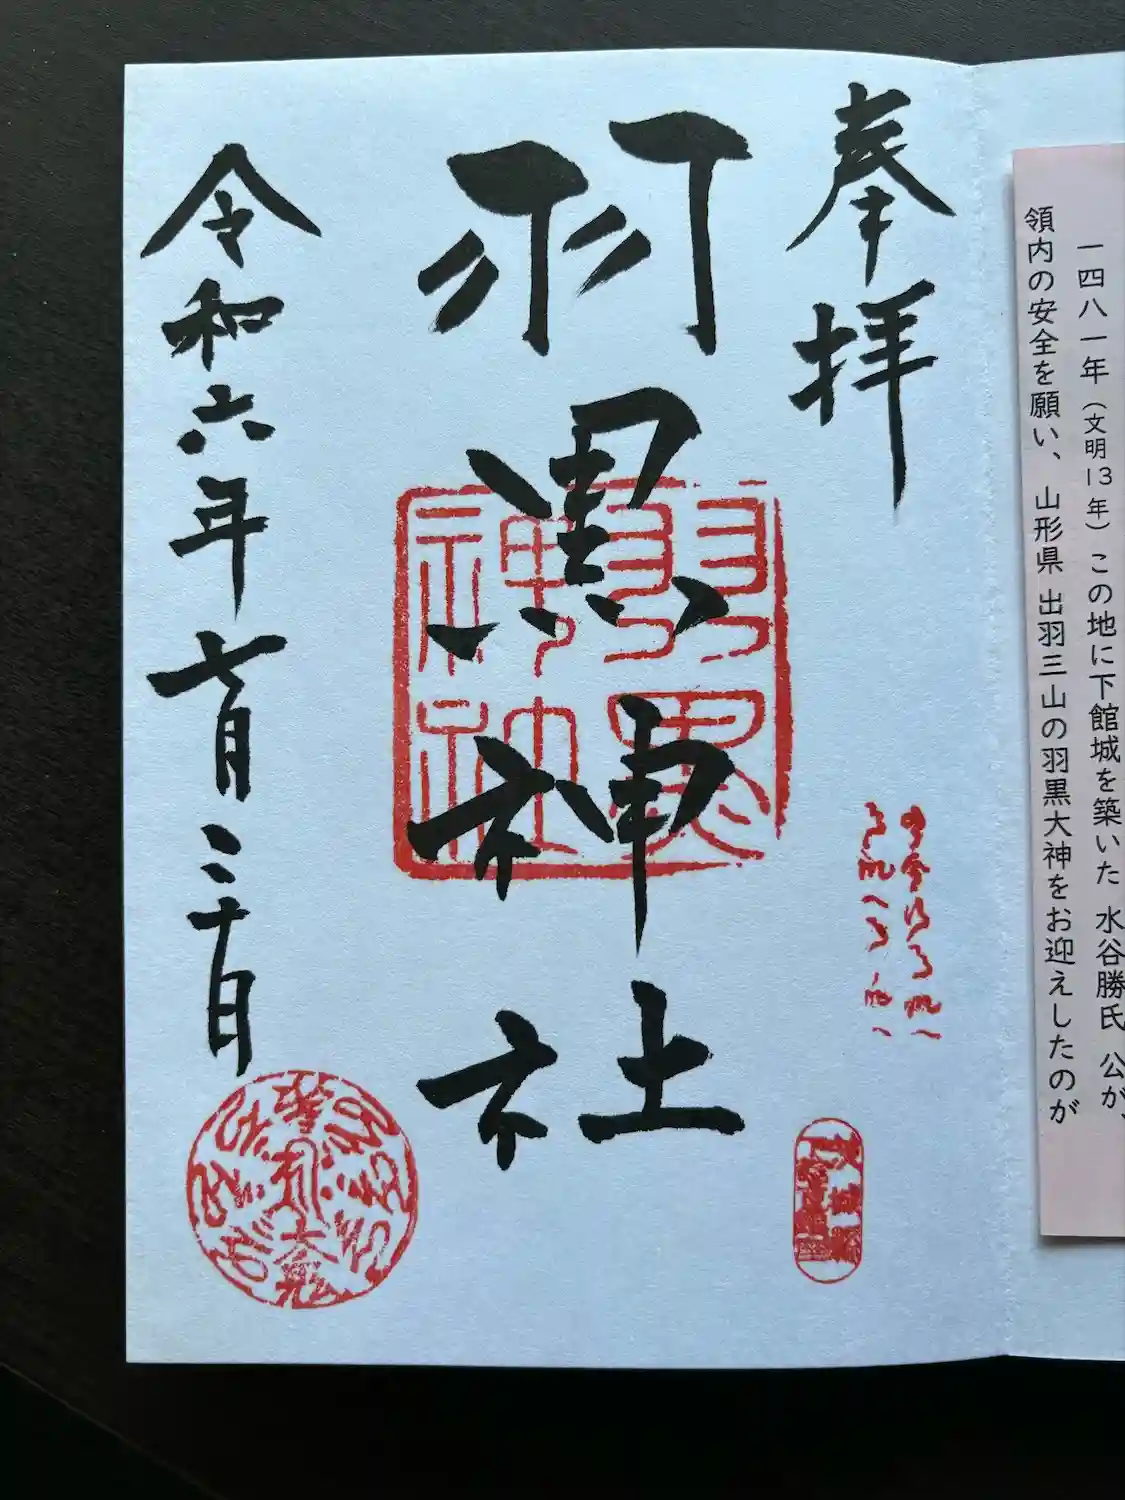 一四八一年(文明13年)この地に下館城を築いた 水谷勝氏 公が、
領内の安全を願い、山形県 出羽三山の羽黒大神をお迎えしたのが
奉拝
羽黒神社
羽黒
神社
令和六年七月二十日